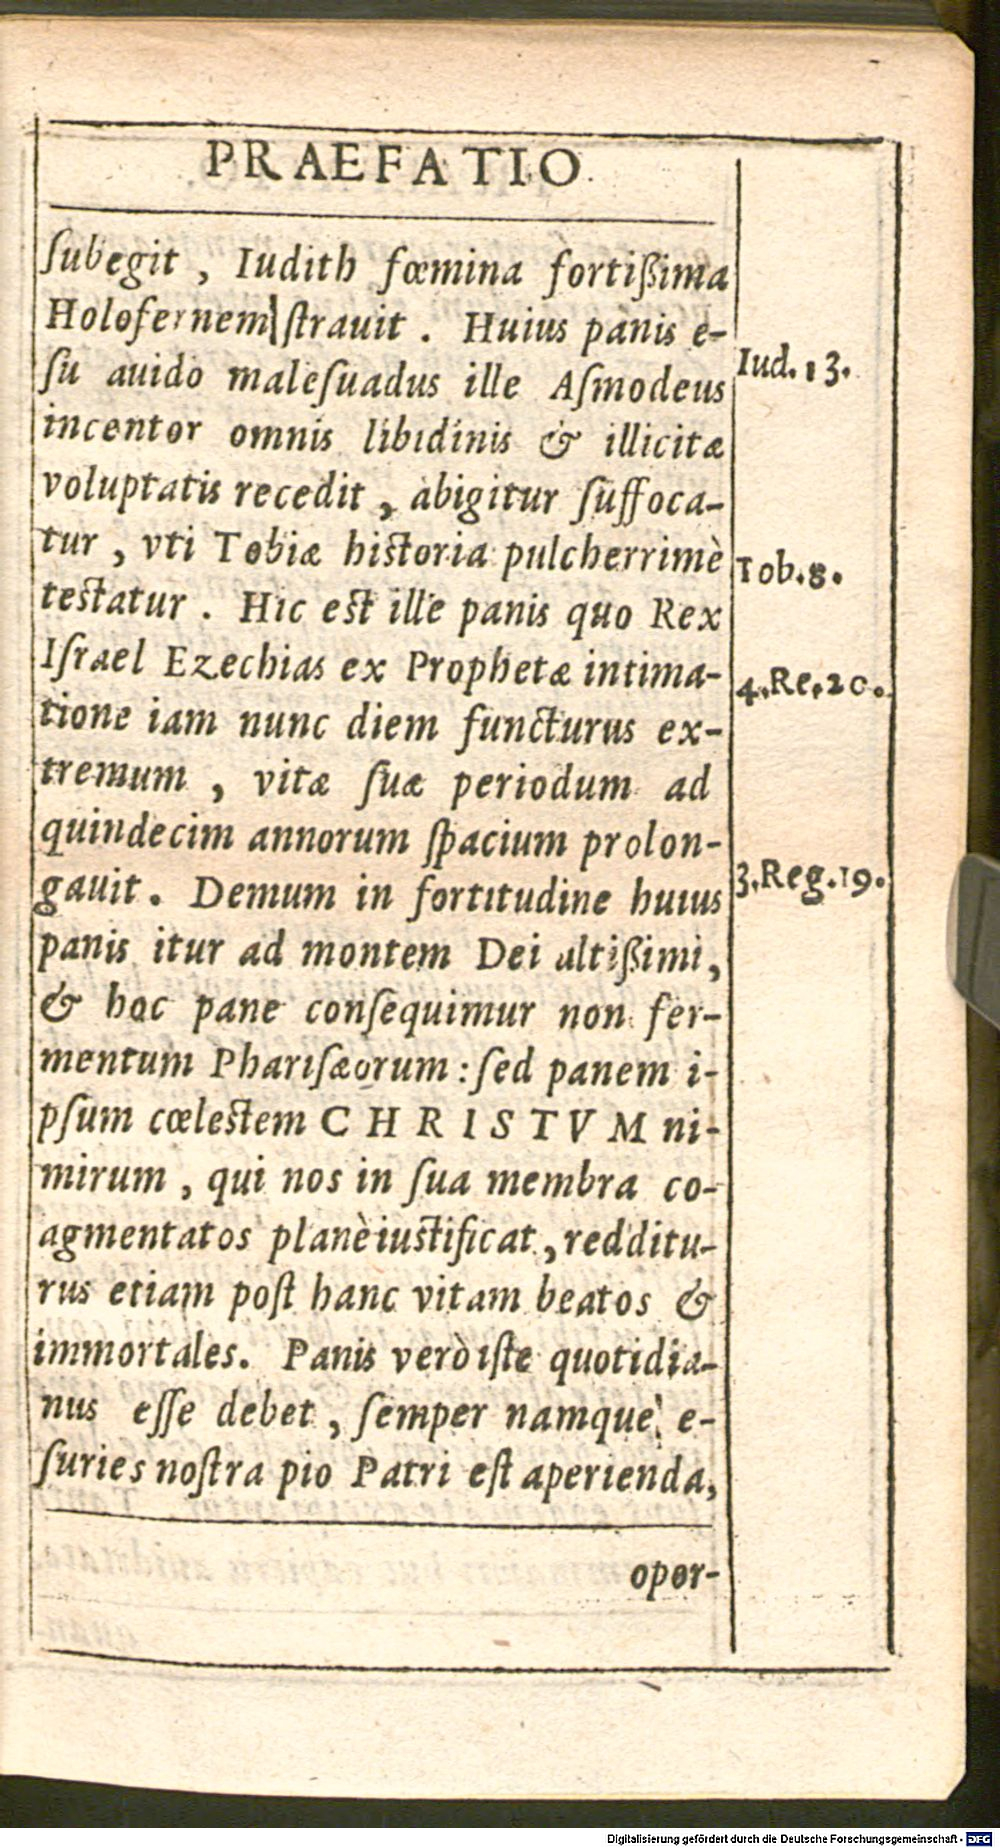 PRAEFATIO
ſubegit, Iudith fœmina fortiſsima
Holofernem ſtrauit. Huius panis e-
ſu auido maleſuadus ille Aſmodeus
incentor omnis libidinis & illicitæ
voluptatis recedit, abigitur ſuffoca-
tur, vti Tobiæ historia pulcherrimè
testatur. Hic est ille panis quo Rex
Iſrael Ezechias ex Prophetæ intima-
tione iam nunc diem functurus ex-
tremum, vitæ ſuæ periodum ad
quindecim annorum ſpacium prolon-
gauit. Demum in fortitudine huius
panis itur ad montem Dei altiſsimi,
& hoc pane conſequimur non fer-
mentum Phariſæorum: ſed panem i-
pſum cœlestem CHRISTVM ni-
mirum, qui nos in ſua membra co-
agmentatos planè iustificat, redditu-
rus etiam poſt hanc vitam beatos &
immortales. Panis verò iſte quotidia-
nus eſſe debet, ſemper namque e-
ſuries noſtra pio Patri eſt aperienda,
opor-
Iud. 13.
Tob. 8.
4. Re. 20.
3. Reg. 19.
Digitalisierung gefördert durch die Deutsche Forschungsgemeinschaft - DFG